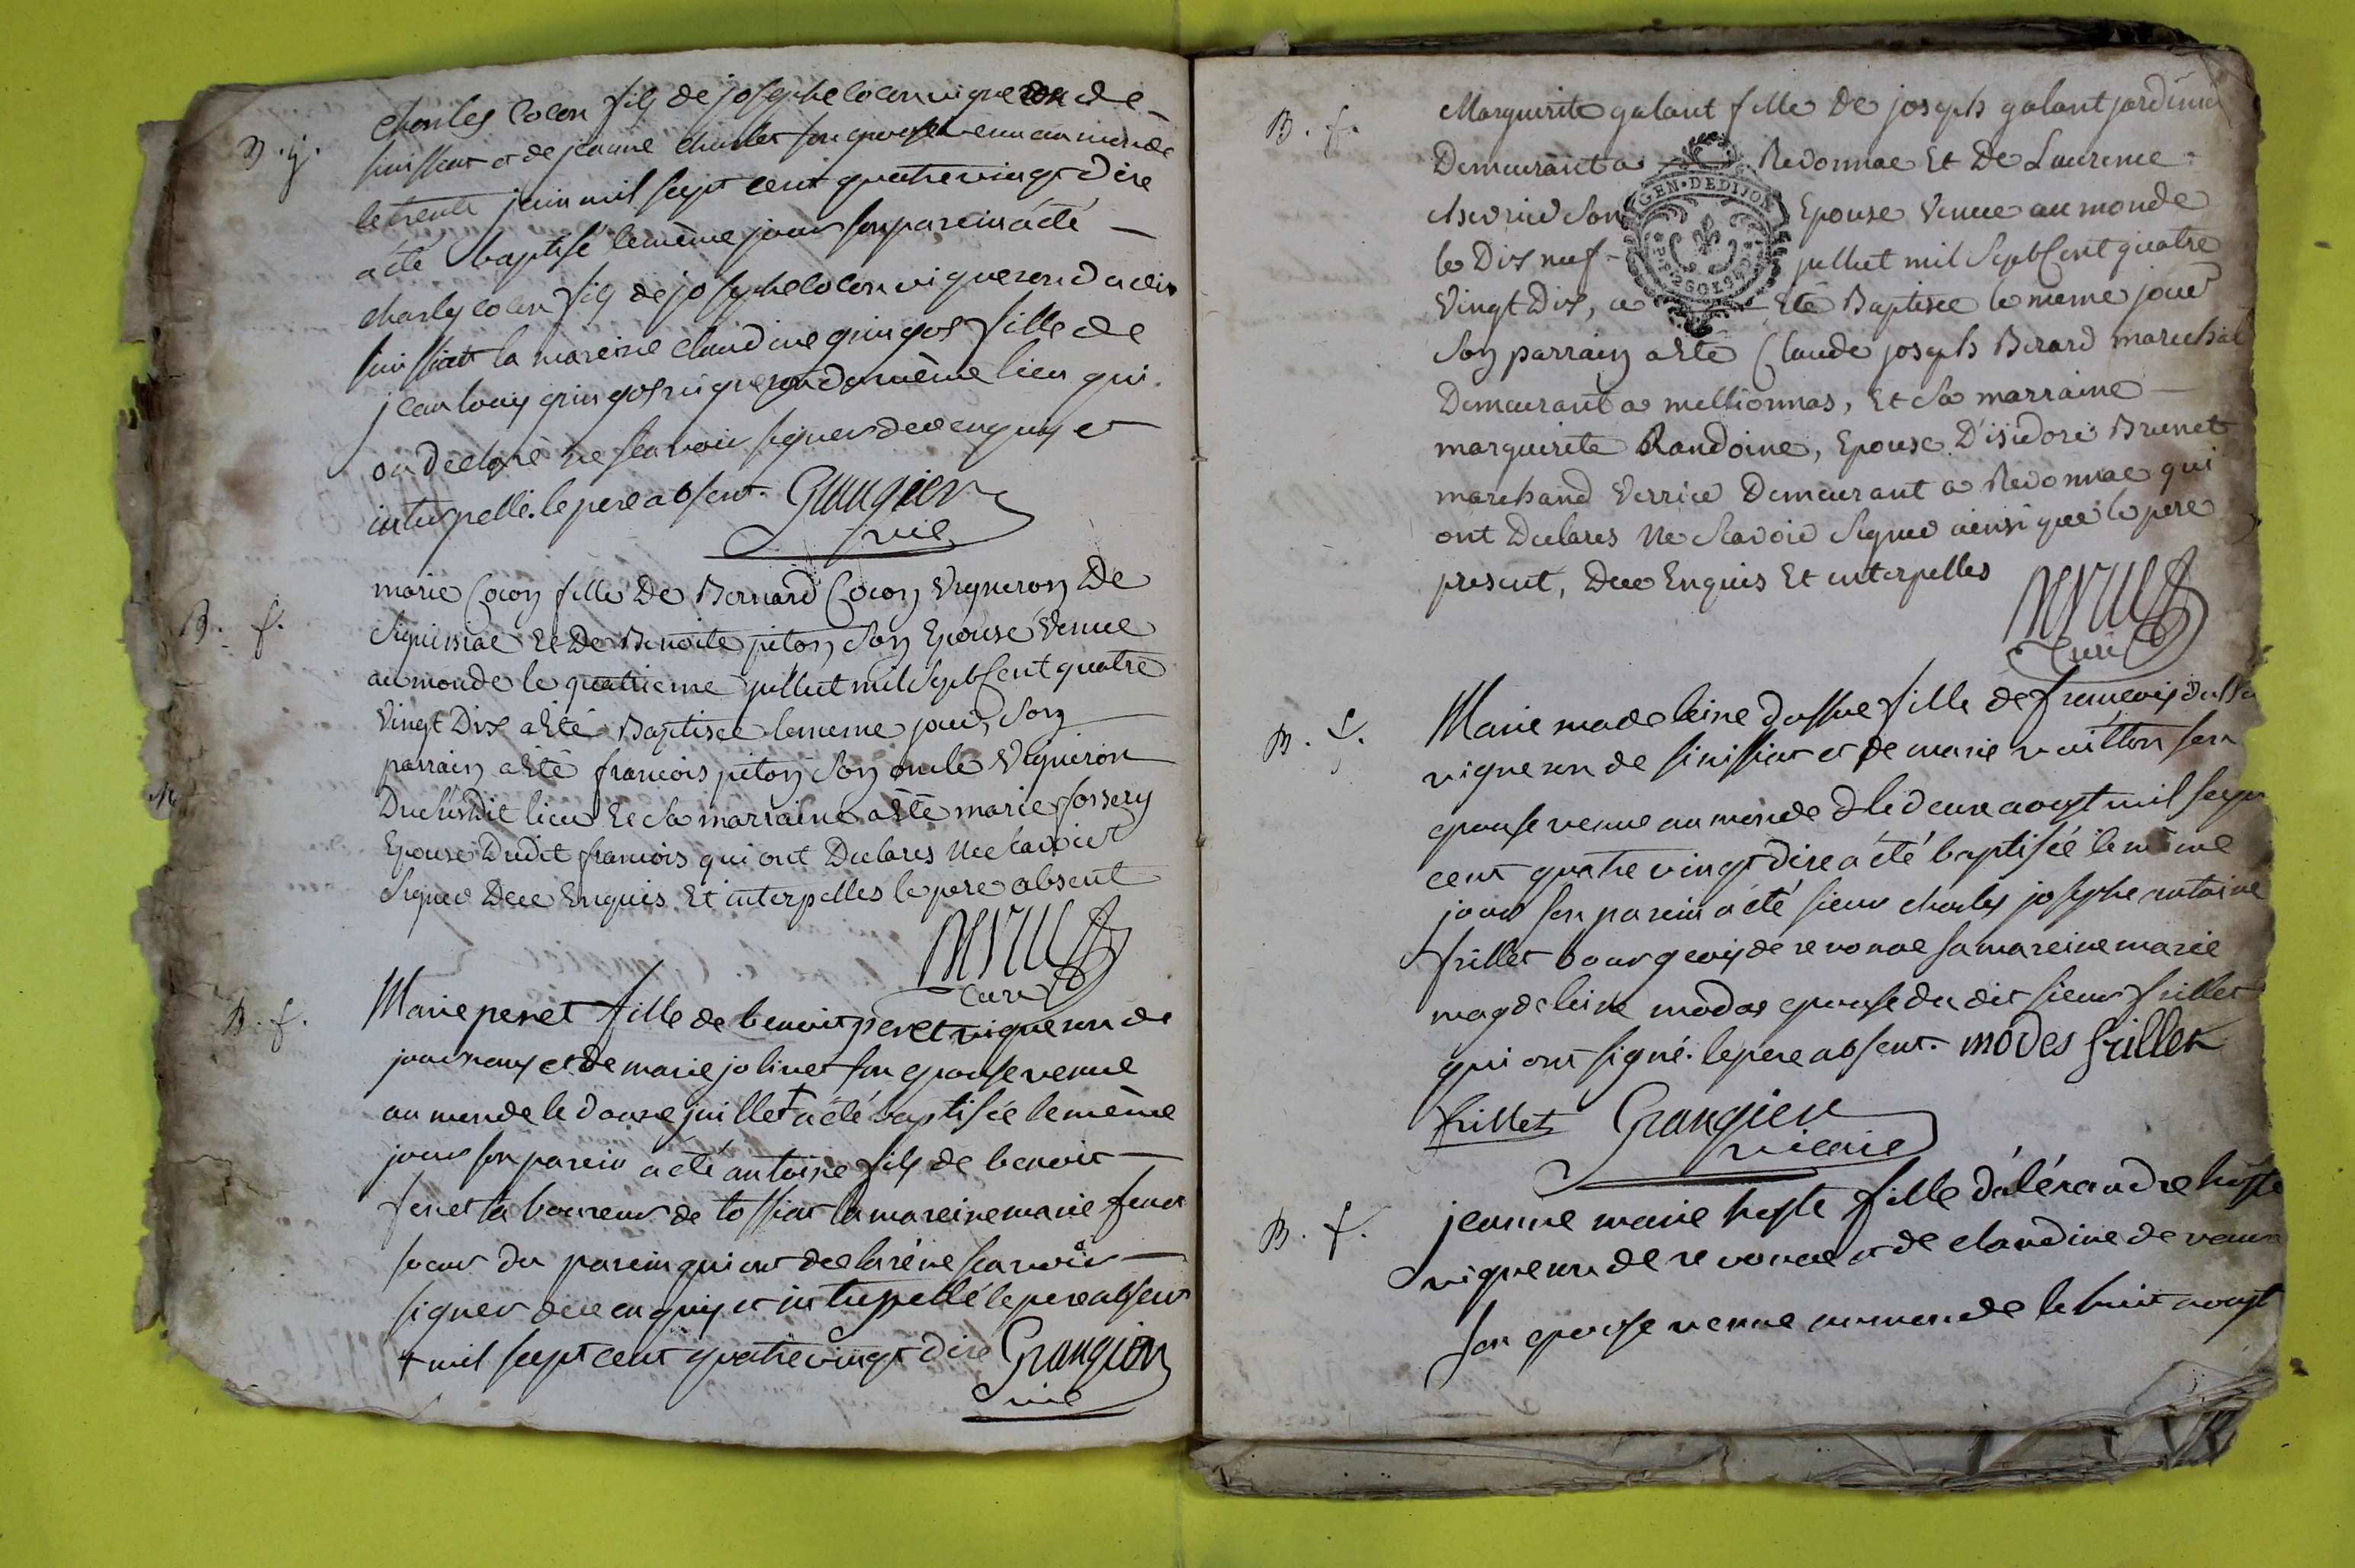 B. g.
charles Cocon fils de josephe cocon vigneron de
et de jeanne son epouse venu au monde
le trente juin mil sept cent quatre vingt dixe
a été baptisé le même jour son parein a été
charles cocon fils de josephe cocon vigneron
la mareine claudine gringos fille de
jean louis gringos vigneron du même lieu qui
on declaré ne scavoir signer dece enquis et
interpellé. le pere absent. Grangier
vic
B. f.
marie Cocon fille De Bernard Cocon Vigneron De
Et De Benoite piton Son Epouse Venue
au monde le quatrieme juillet mil Sept Cent quatre
Vingt Dix a Eté Baptisee le meme jour, Son
parrain a Eté francois piton Son oncle Vigneron
Dudit lieu Et Sa marraine a Eté marie
Epouse Dudit francois qui ont Declares
Signer Dece Enquis Et interpelles le pere absent
Curé
B. f.
Marie peret fille de benoit peret vigneron de
et de marie jolivet son epouse venue
au monde le douze juillet + a été baptisée le même
jour son parein a été antoine fils de benoit
feret laboureur de tossiat la mareine marie feret
soeur du parein qui ont declaré ne scavoir
signer dece enquis et interpellé le pere absent
+ mil sept cent quatre vingt dixe Grangier
vic
B. f.
Marguerite galant fille De joseph galant jardinier
Demeurant a Revonnae Et De Laurence
Son Epouse Venue au monde
le Dix neuf juillet mil Sept Cent quatre
Vingt Dix, a Eté Baptisee le meme jour
Son parrain a Eté Claude joseph Berard marechal
Demeurant a mellionnas, Et Sa marraine
marguerite Randoine, Epouse D'isidore Brunet
marchand Verrier Demeurant a Revonnae qui
ont Declares Ne Scavoir Signer ainsi que le pere
present, Dece Enquis Et interpelles
Curé
GEN · DE DIJON
B. f.
Marie madeleine fille de francois
vigneron de et de marie vuitton son
epouse venue au monde le deux aoust mil sept
cent quatre vingt dixe a été baptisée le même
jour son parein a été sieur charles josephe antoine
frillet bourgeois de revonae sa mareine marie
magdeleine modas epouse du dit sieur frillet
qui ont signé. le pere absent. modes frillet
frillet Grangier
vicaire
B. f.
jeanne marie fille d'aléxandre
vigneron de revonae et de claudine
son epouse venue au monde le huit aoust